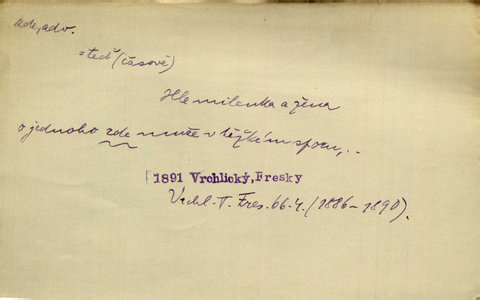 zde, adv.
= teď (časově)
Hle milenka a žena
o jednoho zde muže v těžkém sporu,..
1891 Vrchlický, Fresky
Vrchl. T. Fres. 66.4. (1886–1890).